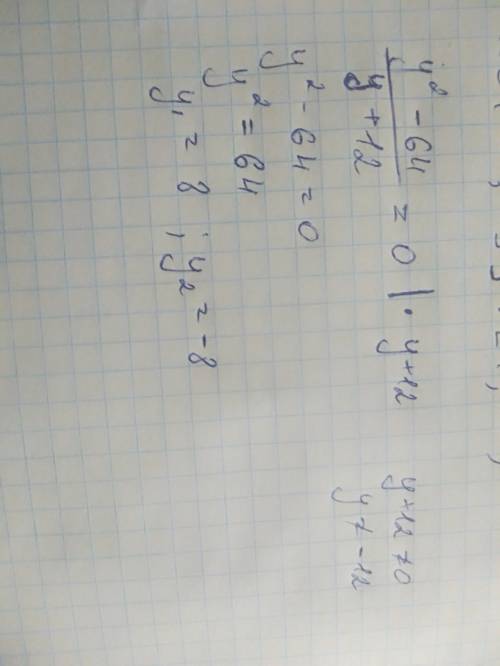 (y² - 64)/(y + 12) = 0 | · y+12
y+12 ≠ 0
y ≠ -12
y² - 64 = 0
y² = 64
y₁ = 8 ; y₂ = -8